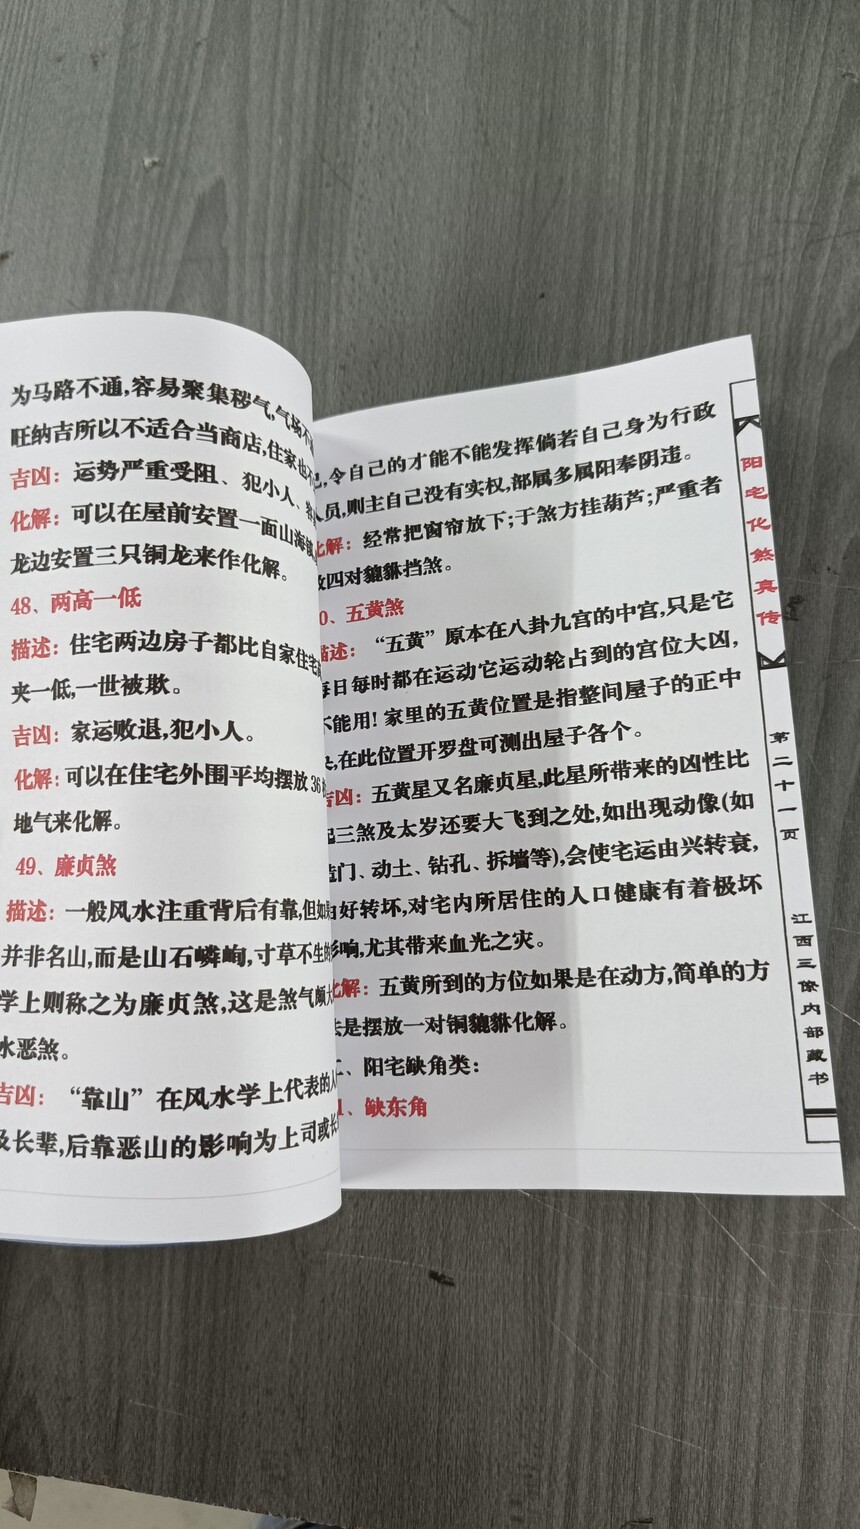 为马路不通,容易聚集秽气,气场不
旺纳吉所以不适合当商店,住家也不
吉凶：运势严重受阻、犯小人、
化解：可以在屋前安置一面山海镇,
龙边安置三只铜龙来作化解。
48、两高一低
描述：住宅两边房子都比自家住宅
夹一低,一世被欺。
吉凶：家运败退,犯小人。
化解：可以在住宅外围平均摆放36
地气来化解。
49、廉贞煞
描述：一般风水注重背后有靠,但如
并非名山,而是山石嶙峋,寸草不生的
学上则称之为廉贞煞,这是煞气颇大
水恶煞。
吉凶：“靠山”在风水学上代表的人
及长辈,后靠恶山的影响为上司或长
己,令自己的才能不能发挥倘若自己身为行政
人员,则主自己没有实权,部属多属阳奉阴违。
化解：经常把窗帘放下;于煞方挂葫芦;严重者
放四对貔貅挡煞。
0、五黄煞
描述：“五黄”原本在八卦九宫的中宫,只是它
每日每时都在运动它运动轮占到的宫位大凶,
不能用!家里的五黄位置是指整间屋子的正中
央,在此位置开罗盘可测出屋子各个。
吉凶：五黄星又名廉贞星,此星所带来的凶性比
起三煞及太岁还要大飞到之处,如出现动像(如
造门、动土、钻孔、拆墙等),会使宅运由兴转衰,
由好转坏,对宅内所居住的人口健康有着极坏
影响,尤其带来血光之灾。
化解：五黄所到的方位如果是在动方,简单的方
法是摆放一对铜貔貅化解。
二、阳宅缺角类：
1、缺东角
阳宅化煞真传
第二十一页
江西三僚内部藏书